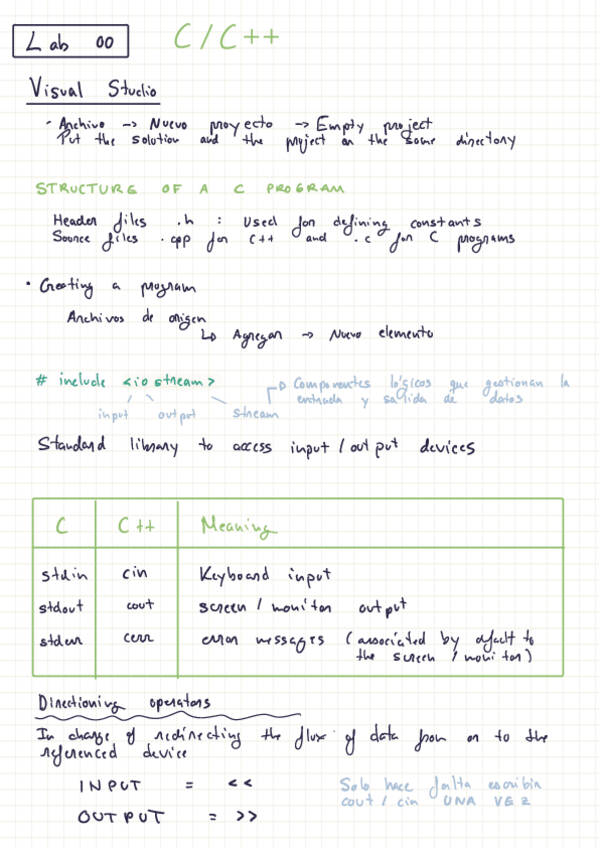 Lab 00
C/C++
Visual Studio
· Archivo → Nuevo proyecto → Empty project
Put the solution and the project on the same directory
STRUCTURE OF A C PROGRAM
Header files .h : Used for defining constants
Source files .cpp for C++ and .c for C programs
• Creating a program
Archivos de origen
↳ Agregar → Nuevo elemento
# include <iostream>
→ Componentes lógicos que gestionan la
entrada y salida de datos
input output stream
Standard library to access input / output devices
C C++ Meaning
stdin cin Keyboard input
stdout cout screen / monitor output
stderr cerr error messages (associated by default to
the screen / monitor)
Directioning operators
In charge of redirecting the flux of data from or to the
referenced device
INPUT = <<
OUTPUT = >>
Solo hace falta escribir
cout / cin UNA VEZ